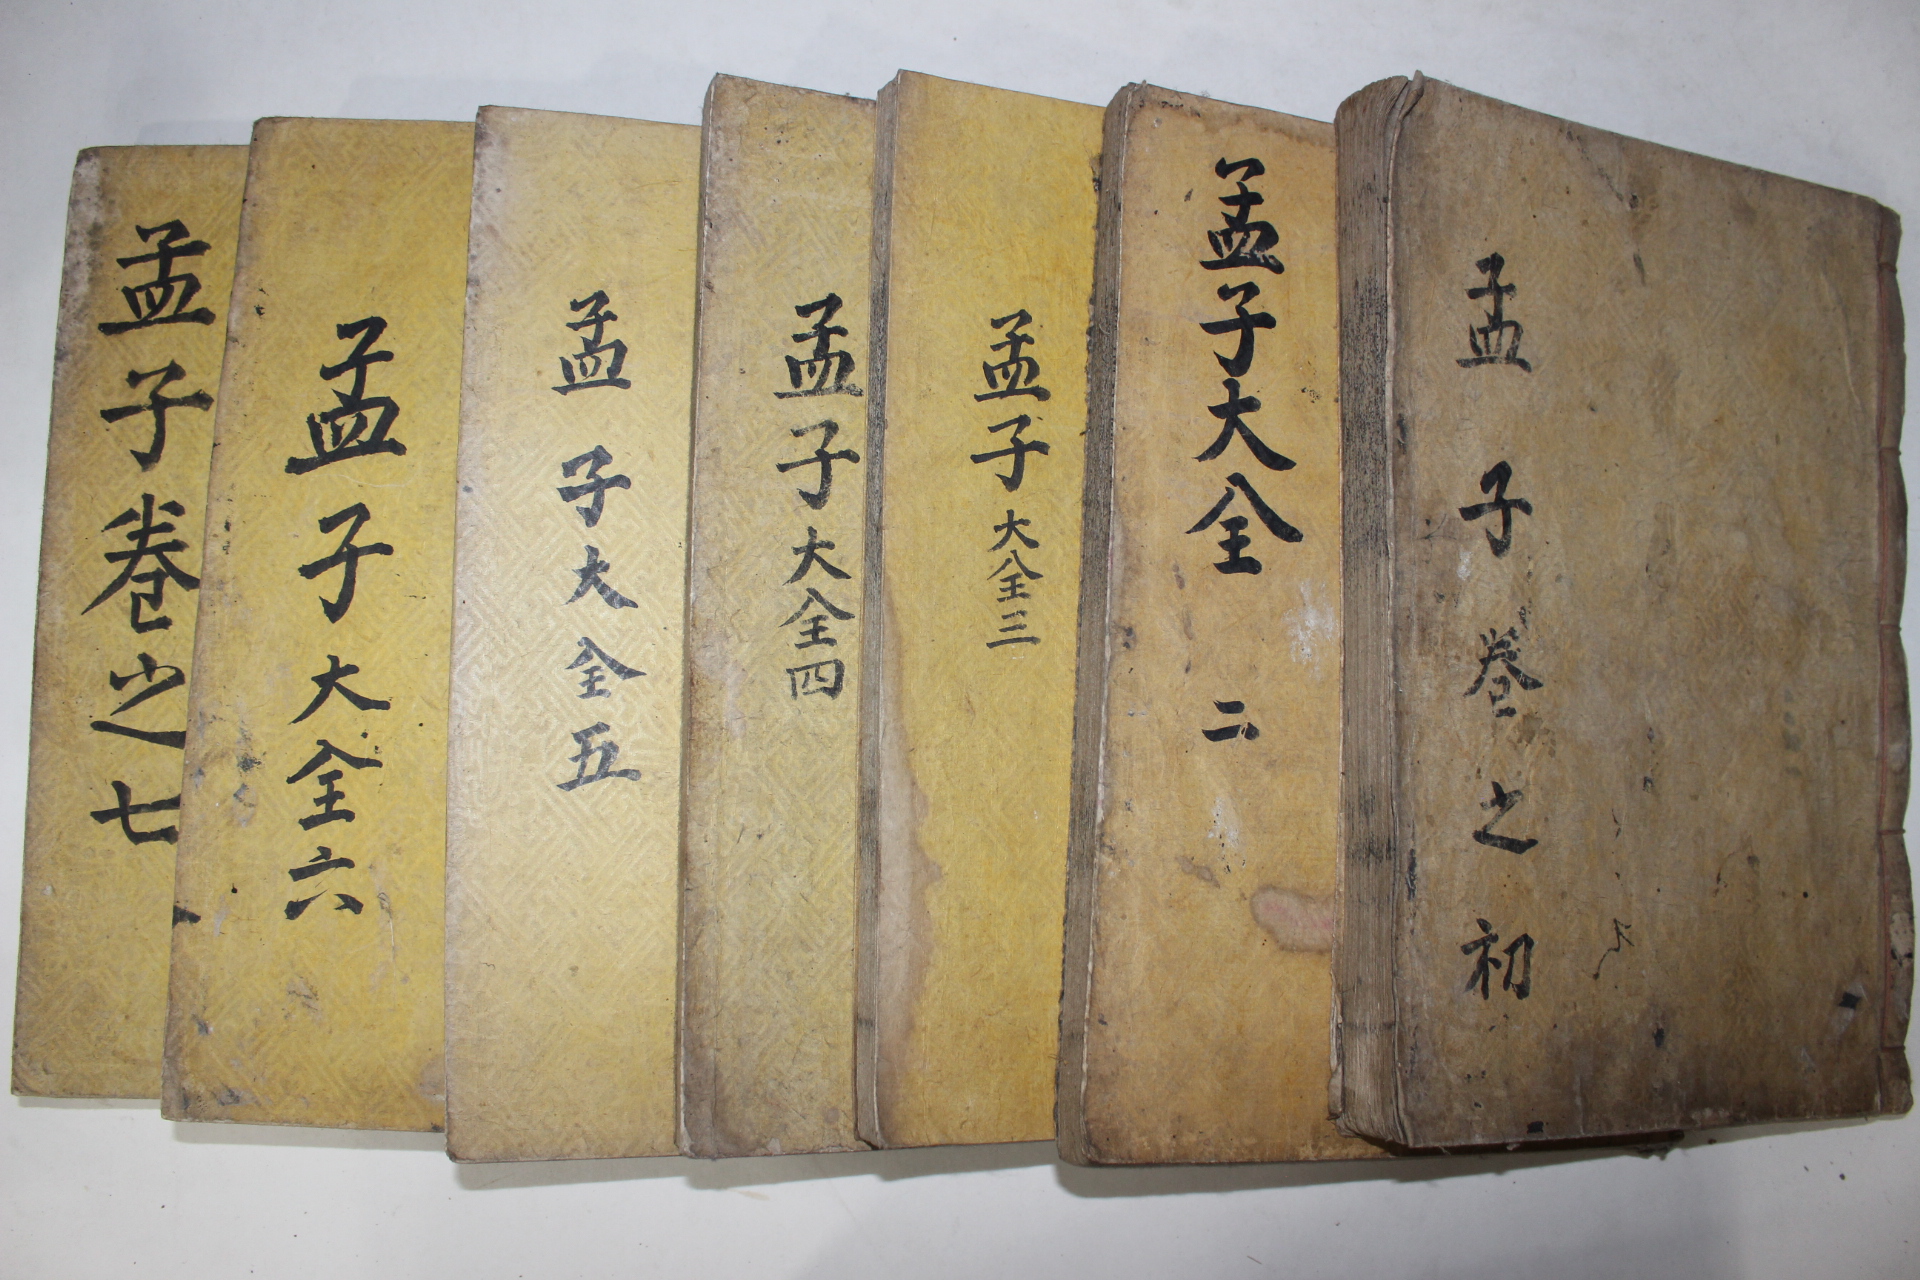 孟子卷之初
孟子大全 二
孟子大全三
孟子大全四
孟子大全五
孟子大全六
孟子卷之七